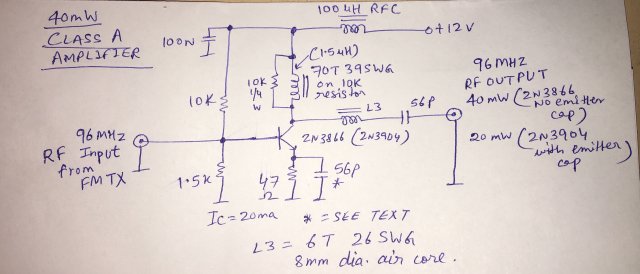 40mW
CLASS A
AMPLIFIER
100 UH RFC
0+12V
100N
(1.5UH)
70T 39SWG
on 10K
resistor
10K
1/4
W
10K
L3
56P
96MHZ
RF OUTPUT
40mW (2N3866
NO emitter
cap)
20mW (2N3904
with emitter
cap)
96MHZ
RF Input
from
FMTX
2N3866 (2N3904)
1.5K
47
Ω
56P
*
Ic=20ma * = SEE TEXT
L3 = 6T 26SWG
8mm dia. air core.